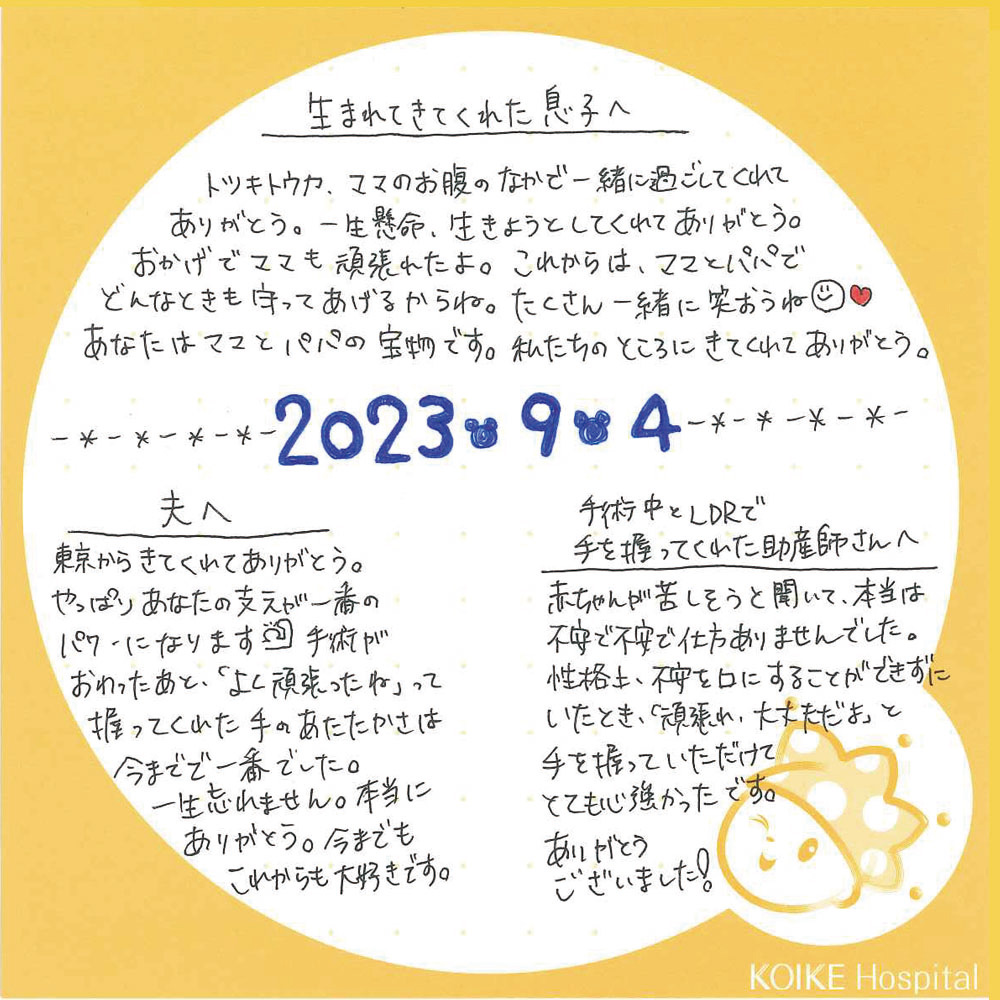 生まれてきてくれた息子へ
トツキトウカ、ママのお腹のなかで一緒に過ごしてくれて
ありがとう。一生懸命、生きようとしてくれてありがとう。
おかげでママも頑張れたよ。これからは、ママとパパで
どんなときも守ってあげるからね。たくさん一緒に笑おうね
あなたはママとパパの宝物です。私たちのところにきてくれてありがとう。
2023 9 4
夫へ
東京からきてくれてありがとう。
やっぱりあなたの支えが一番の
パワーになります 手術が
おわったあと、「よく頑張ったね」って
握ってくれた手のあたたかさは
今までで一番でした。
一生忘れません。本当に
ありがとう。今までも
これからも大好きです。
手術中とLDRで
手を握ってくれた助産師さんへ
赤ちゃんが苦しそうと聞いて、本当は
不安で不安で仕方ありませんでした。
性格上、不安を口にすることができずに
いたとき、「頑張れ、大丈夫だよ」と
手を握っていただけて
とても心強かったです。
ありがとう
ございました!
KOIKE Hospital